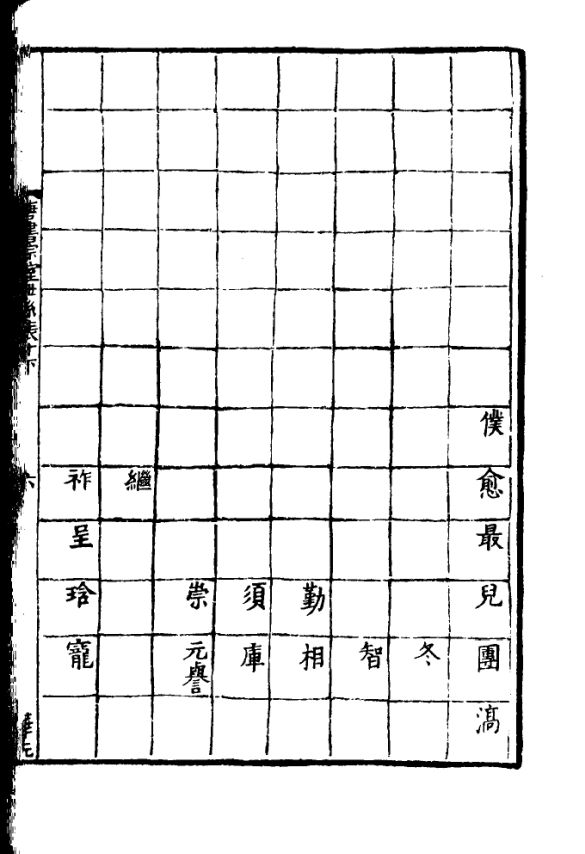 僕愈最兒團滈
冬
智
勤相
須庫
崇元譽
繼
祚呈琀寵
唐書宗室世系表十下
六